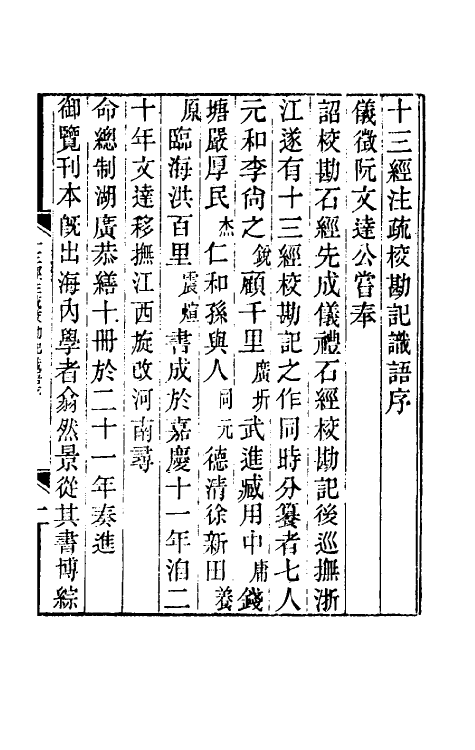 十三經注疏校勘記識語序
儀徵阮文達公嘗奉
詔校勘石經先成儀禮石經校勘記後巡撫浙
江遂有十三經校勘記之作同時分纂者七人
元和李尙之銳顧千里廣圻武進臧用中庸錢
塘嚴厚民杰仁和孫與人同元德清徐新田養
原臨海洪百里震煊書成於嘉慶十一年洎二
十年文達移撫江西旋改河南尋
命總制湖廣恭繕十册於二十一年奏進
御覽刊本旣出海內學者翕然景從其書博綜
十三經注疏校勘記識語序
一